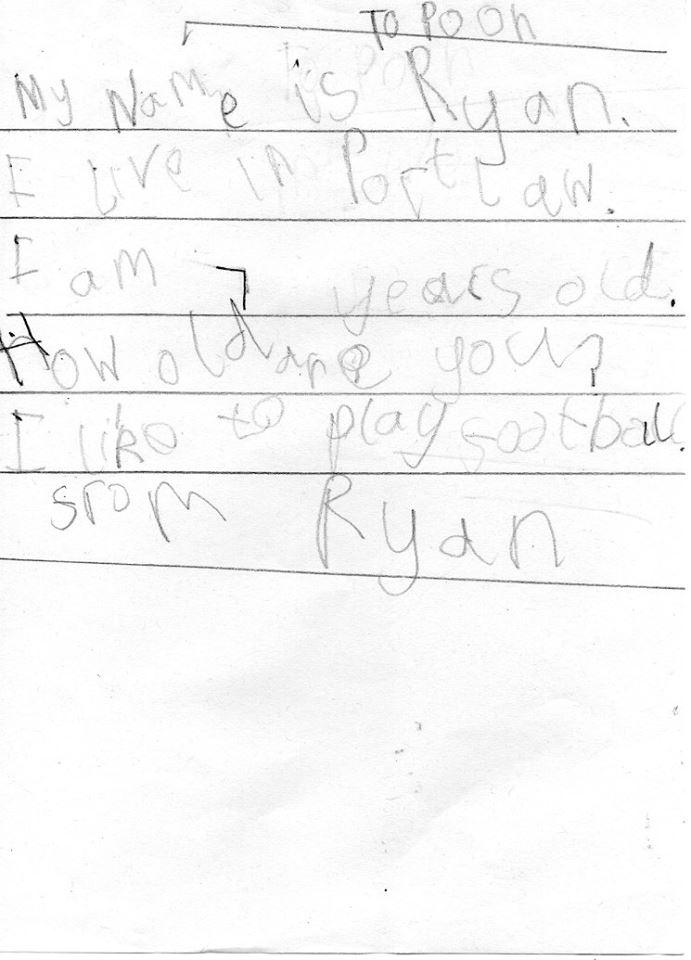 To Pooh
My Name is Ryan.
I live in Portlaw.
I am 7 years old.
How old are you?
I like to play football.
from Ryan